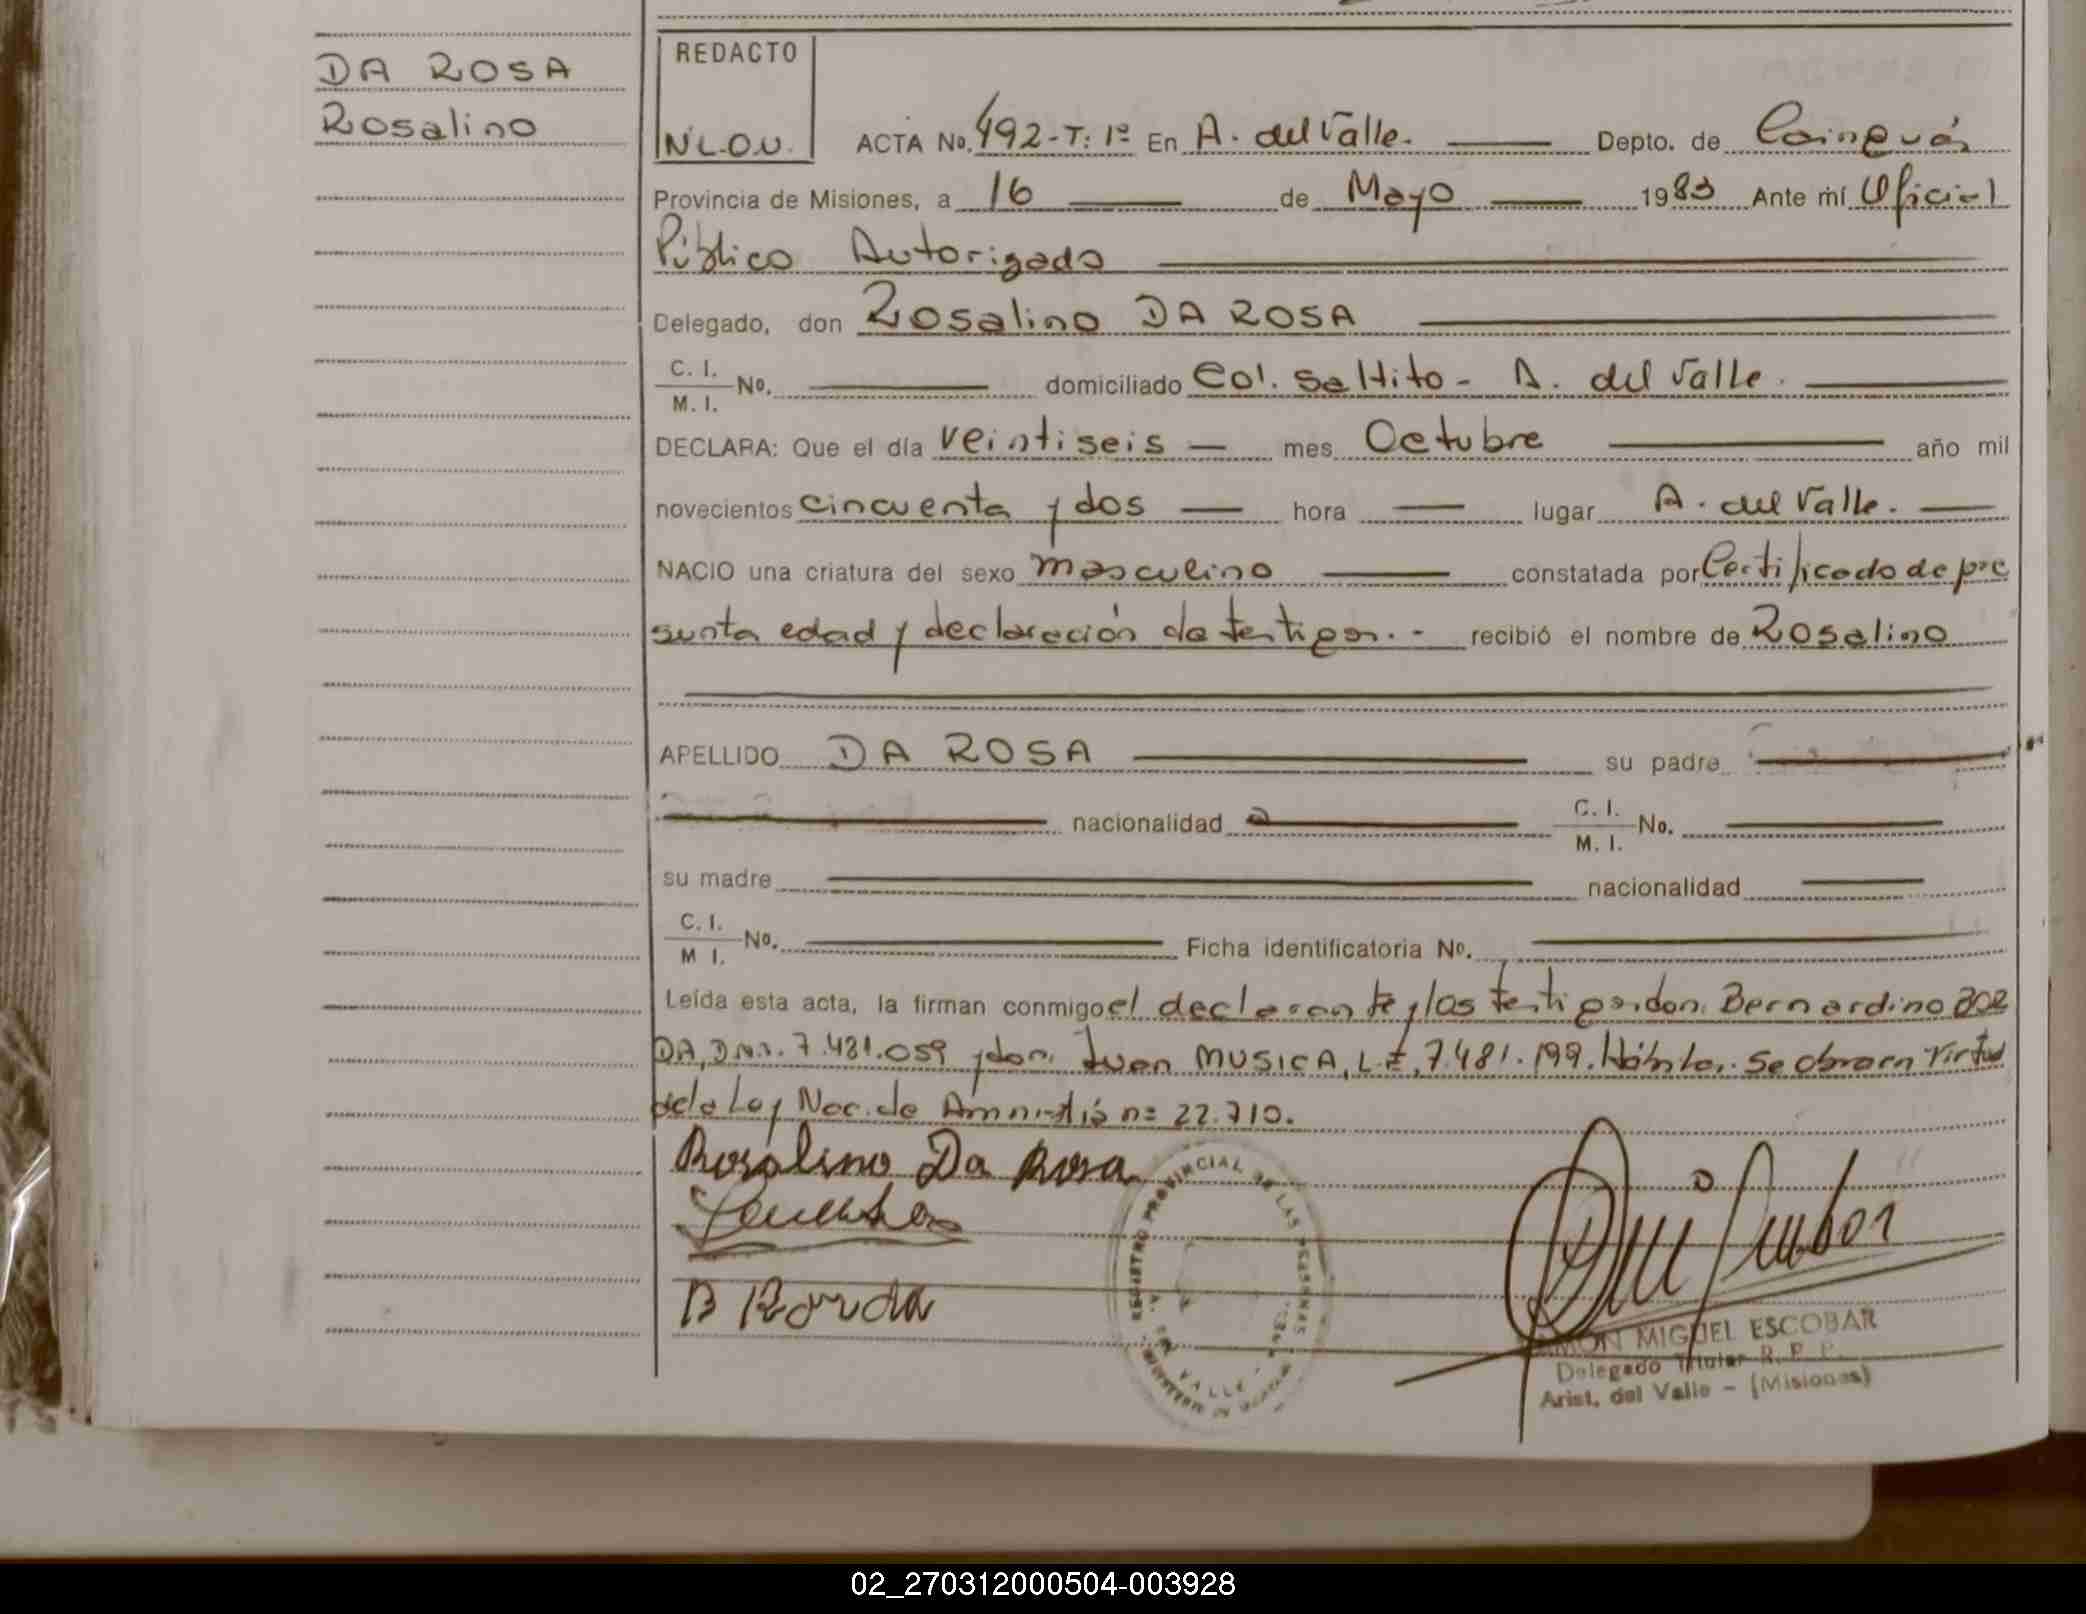 DA ROSA
Rosalino
REDACTO
N.L.O.U.
ACTA No. 492-T: 1º En A. del Valle. Depto. de Cainguás
Provincia de Misiones, a 16 de Mayo 1983 Ante mí Oficial
Público Autorizado
Delegado, don Rosalino DA ROSA
C. I.
M. I. No. domiciliado Col. Saltito - A. del Valle.
DECLARA: Que el día veintiseis mes Octubre año mil
novecientos cincuenta y dos hora lugar A. del Valle.
NACIO una criatura del sexo masculino constatada por Certificado de pre
sunta edad y declaración de testigos. - recibió el nombre de Rosalino
APELLIDO DA ROSA su padre
nacionalidad C. I.
M. I. No.
su madre nacionalidad
C. I.
M I. No. Ficha identificatoria No.
Leída esta acta, la firman conmigo el declarante y los testigos. don. Bernardino BOR
DA, D.N.I. 7.481.059 y don. Juan MUSICA, L.E, 7.481.199. Hábiles. Se obra en virtud
de la Ley Nac. de Amnistía nº 22.710.
Rosalino Da Rosa
B Borda
REGISTRO PROVINCIAL DE LAS PERSONAS
VALLE
MIGUEL ESCOBAR
Delegado Titular R. P. P.
Arist. del Valle - (Misiones)
02_270312000504-003928